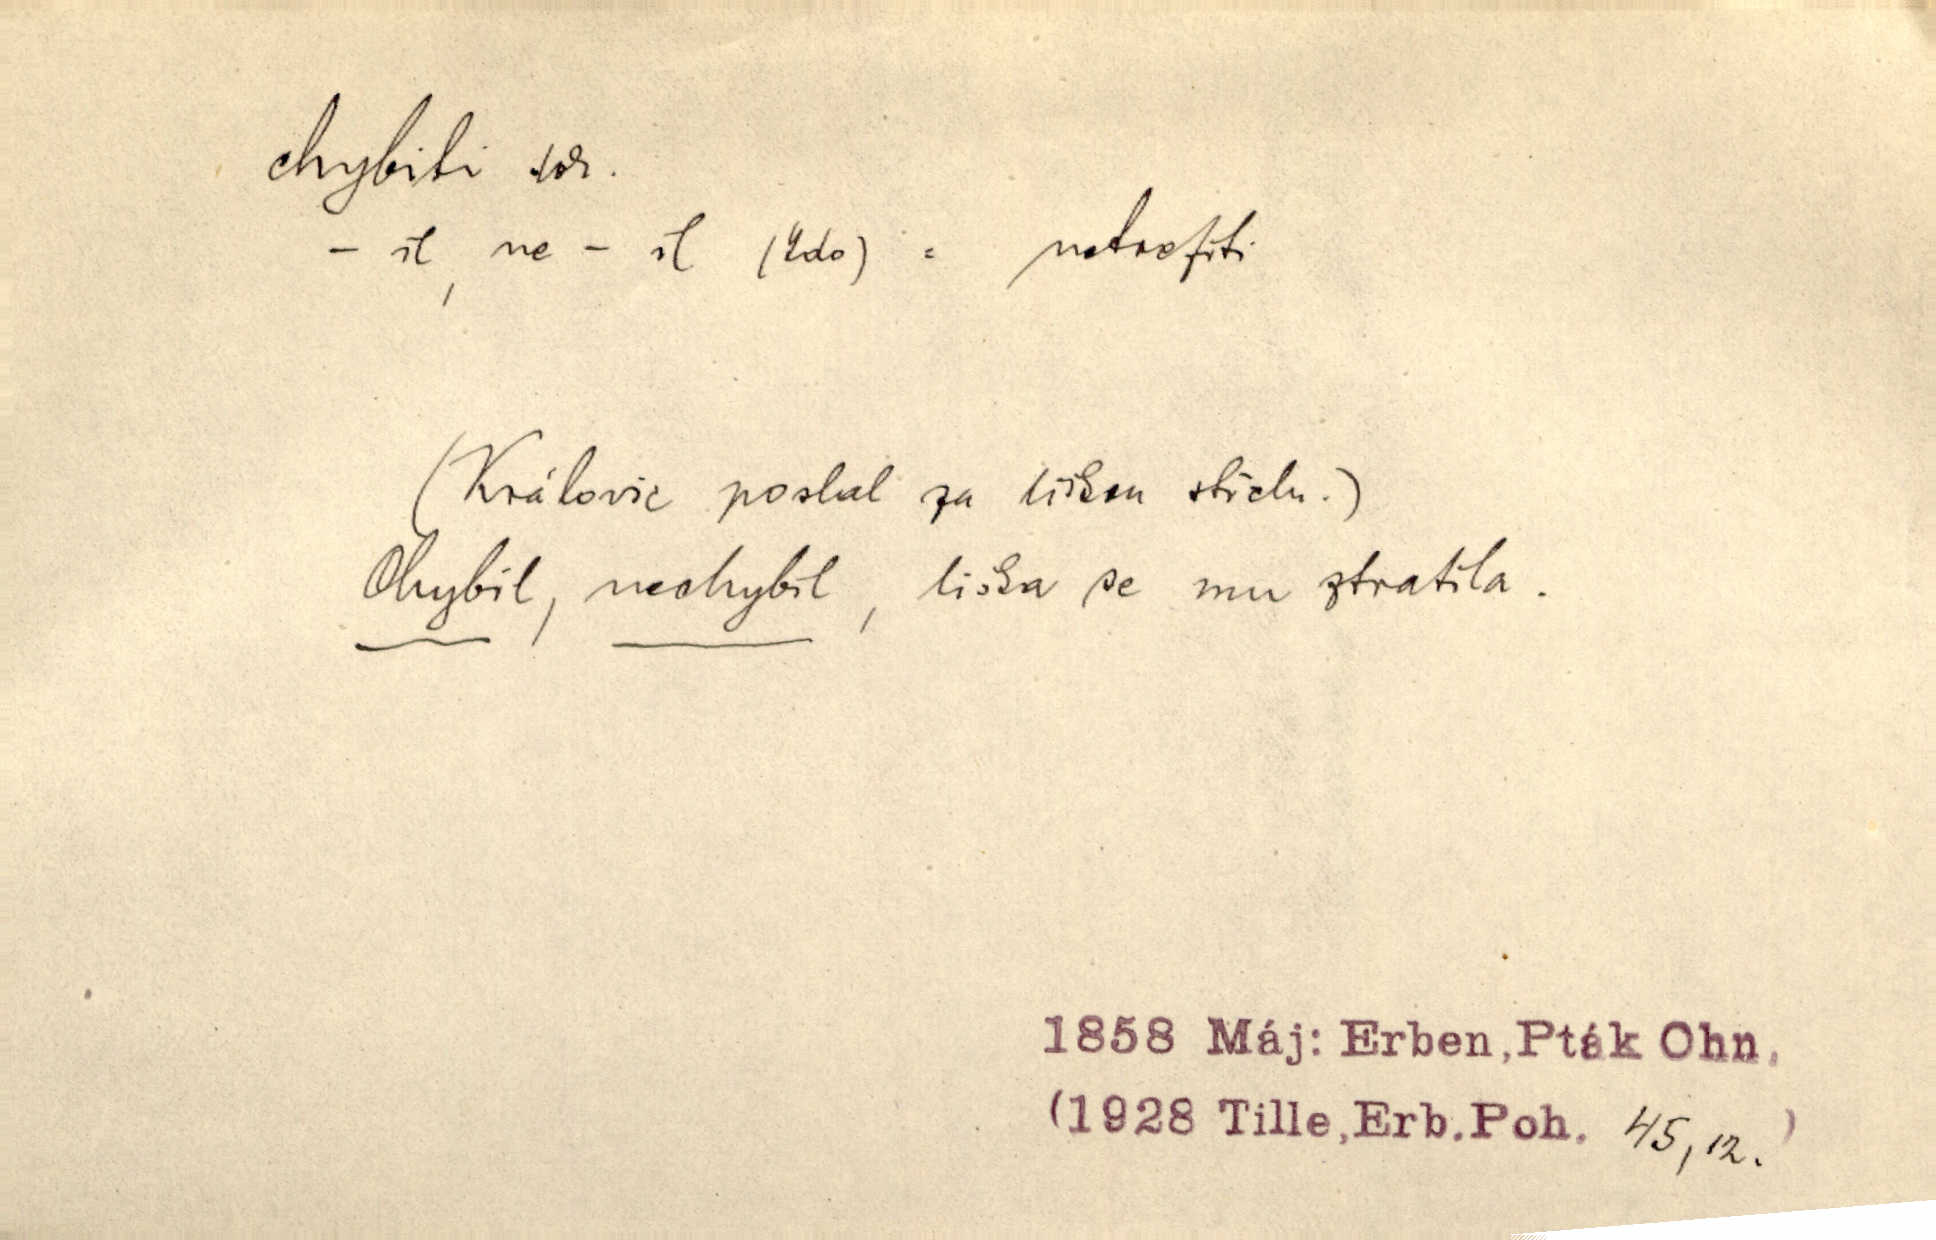 chybiti dok.
– il, ne – il (kdo) = netrefiti
(Královic poslal za liškou střelu.)
Chybil, nechybil, liška se mu ztratila.
1858 Máj: Erben, Pták Ohn.
(1928 Tille, Erb. Poh. 45, 12. )